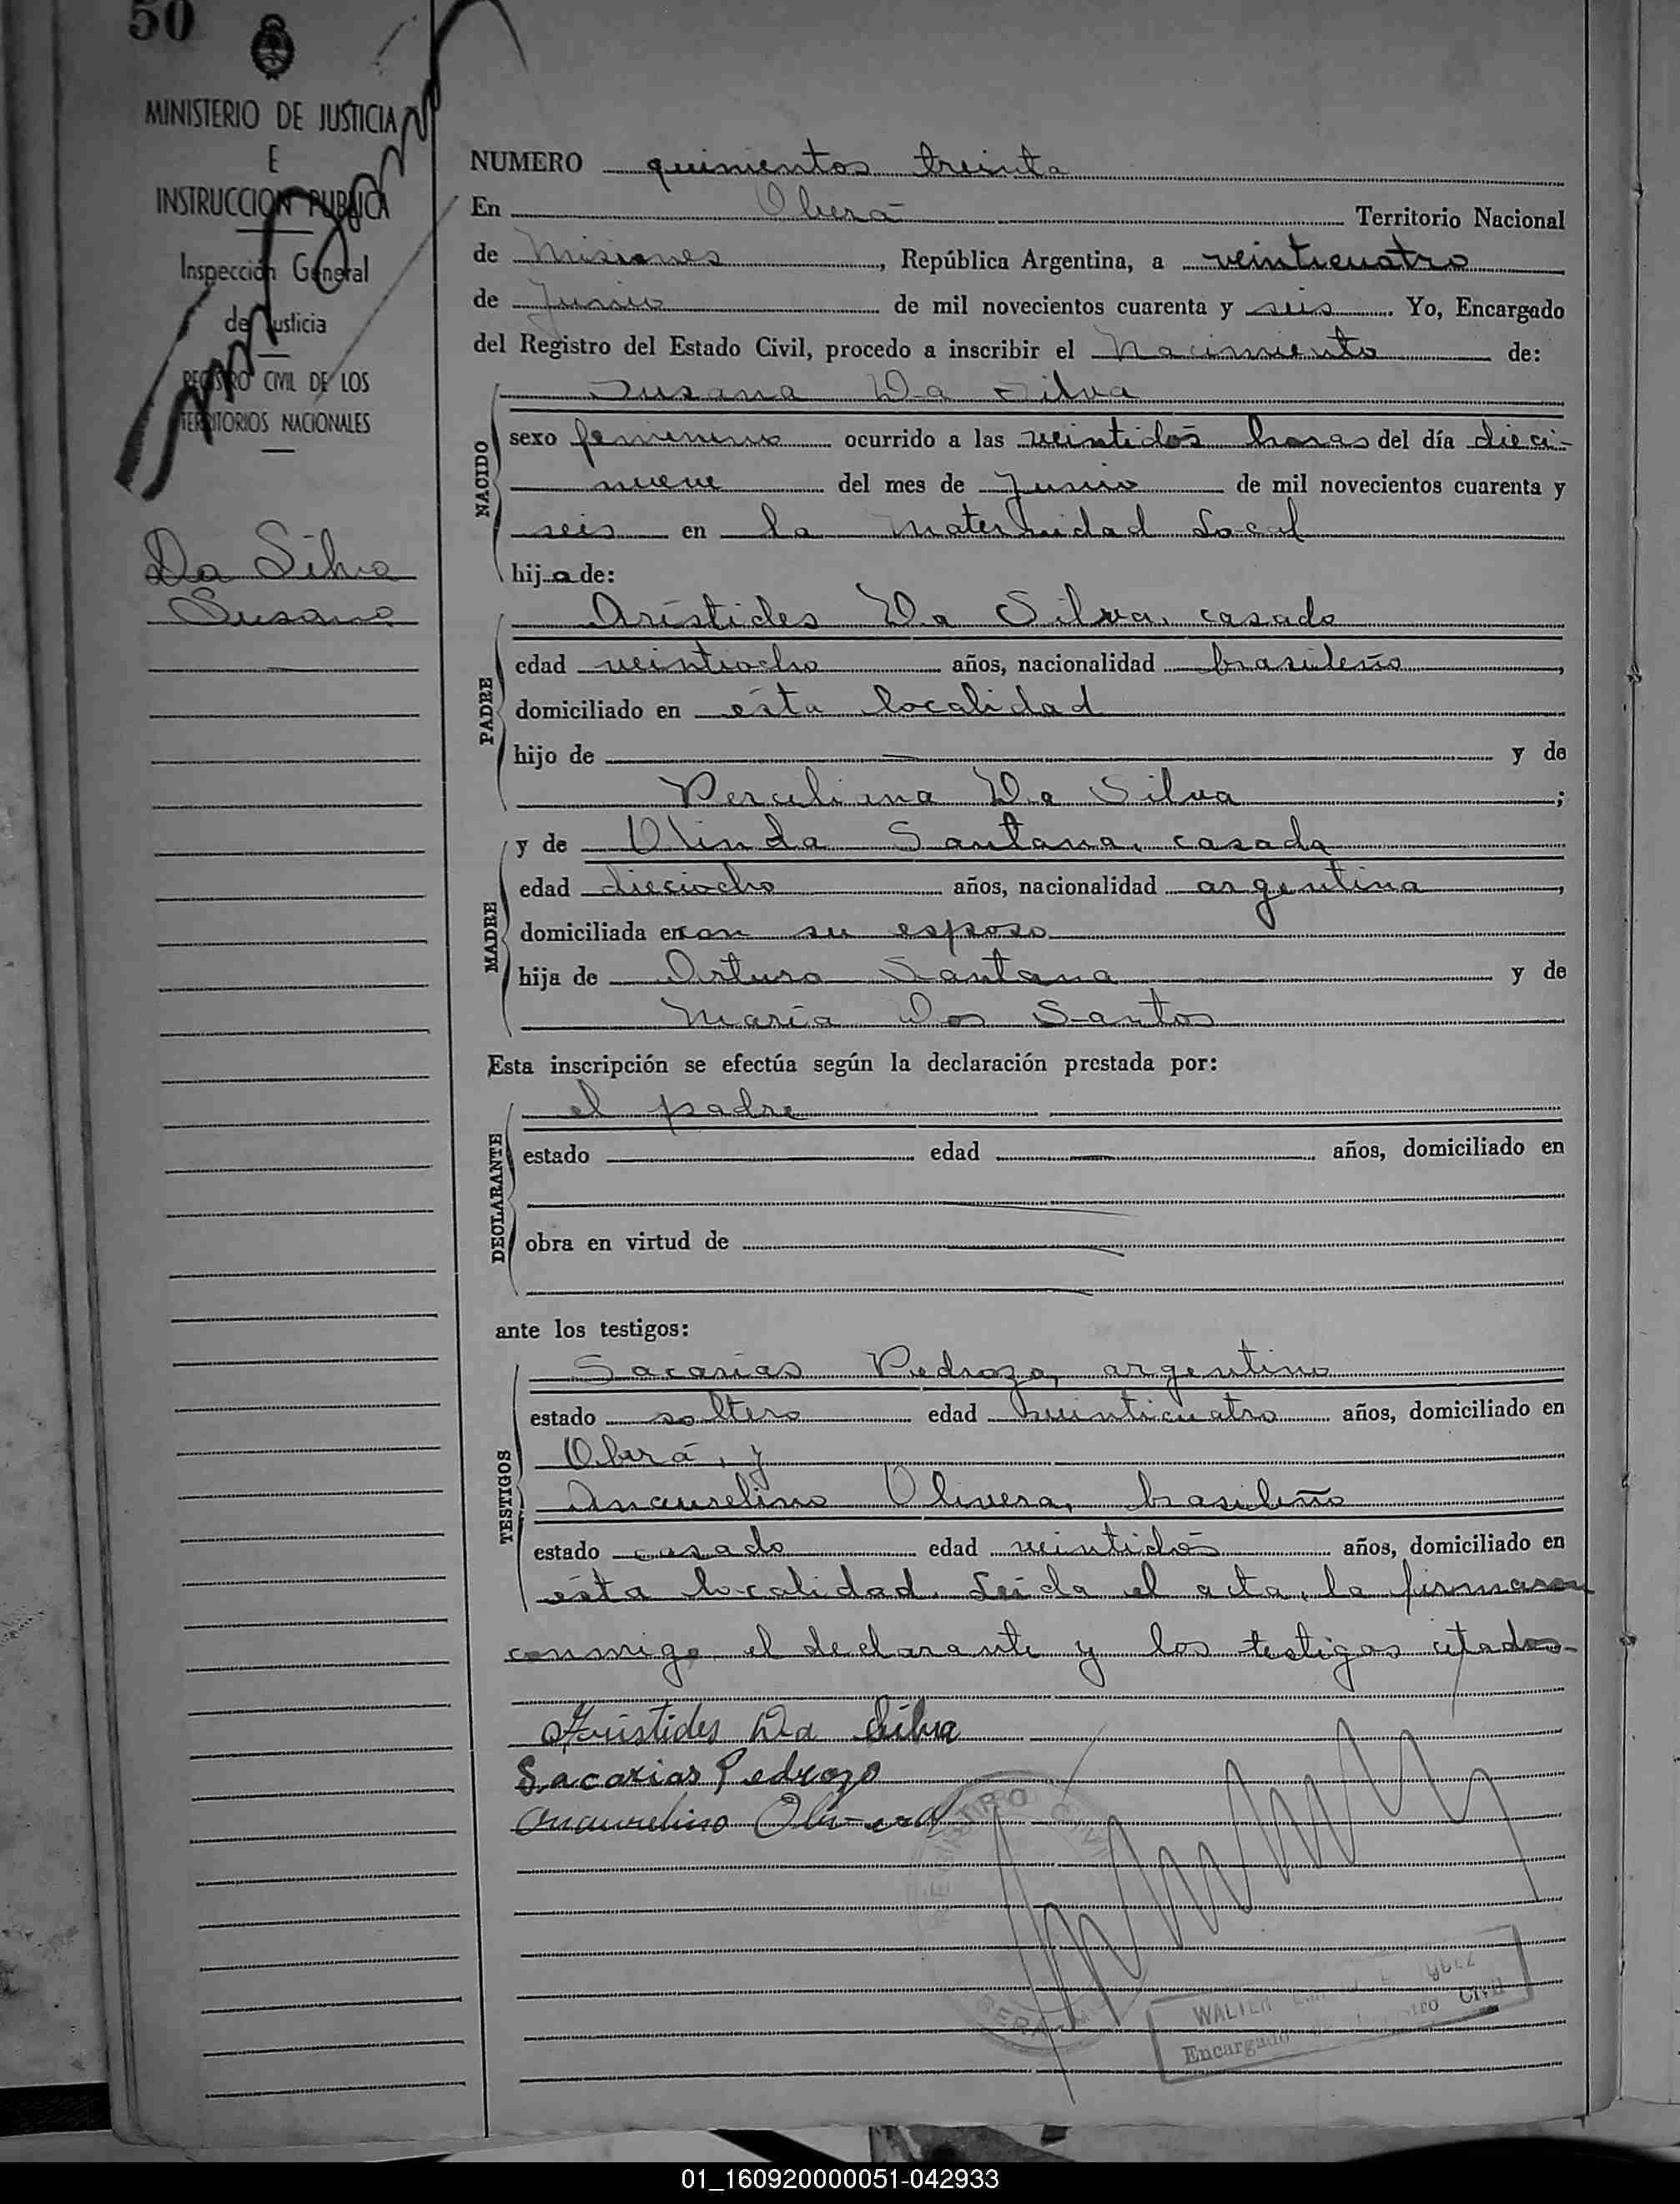 50
MINISTERIO DE JUSTICIA
E
INSTRUCCION PUBLICA
Inspección General
de Justicia
REGISTRO CIVIL DE LOS
TERRITORIOS NACIONALES
Da Silva
Susana
NUMERO quinientos treinta
En Oberá Territorio Nacional
de Misiones, República Argentina, a veinticuatro
de Junio de mil novecientos cuarenta y seis. Yo, Encargado
del Registro del Estado Civil, procedo a inscribir el Nacimiento de:
Susana Da Silva
NACIDO
sexo femenino ocurrido a las veintidós horas del día dieci-
nueve del mes de Junio de mil novecientos cuarenta y
seis en la Maternidad Local
hija de:
Arístides Da Silva, casado
PADRE
edad veintiocho años, nacionalidad brasileño,
domiciliado en ésta localidad
hijo de — y de
Perculiana Da Silva;
y de Olinda Santana, casada
MADRE
edad dieciocho años, nacionalidad argentina,
domiciliada en con su esposo
hija de Arturo Santana y de
María Dos Santos
Esta inscripción se efectúa según la declaración prestada por:
el padre
DECLARANTE
estado — edad — años, domiciliado en
obra en virtud de —
ante los testigos:
Sacarías Pedrozo, argentino
TESTIGOS
estado soltero edad veinticuatro años, domiciliado en
Oberá, y
Anaurelino Olivera, brasileño
estado casado edad veintidós años, domiciliado en
ésta localidad. Leída el acta, la firmaron
conmigo el declarante y los testigos citados-
Aristides Da Silva
Sacarias Pedrozo
Anaurelino Olivera
REGISTRO CIVIL
OBERA
WALTER
Encargado Registro Civil
01_160920000051-042933